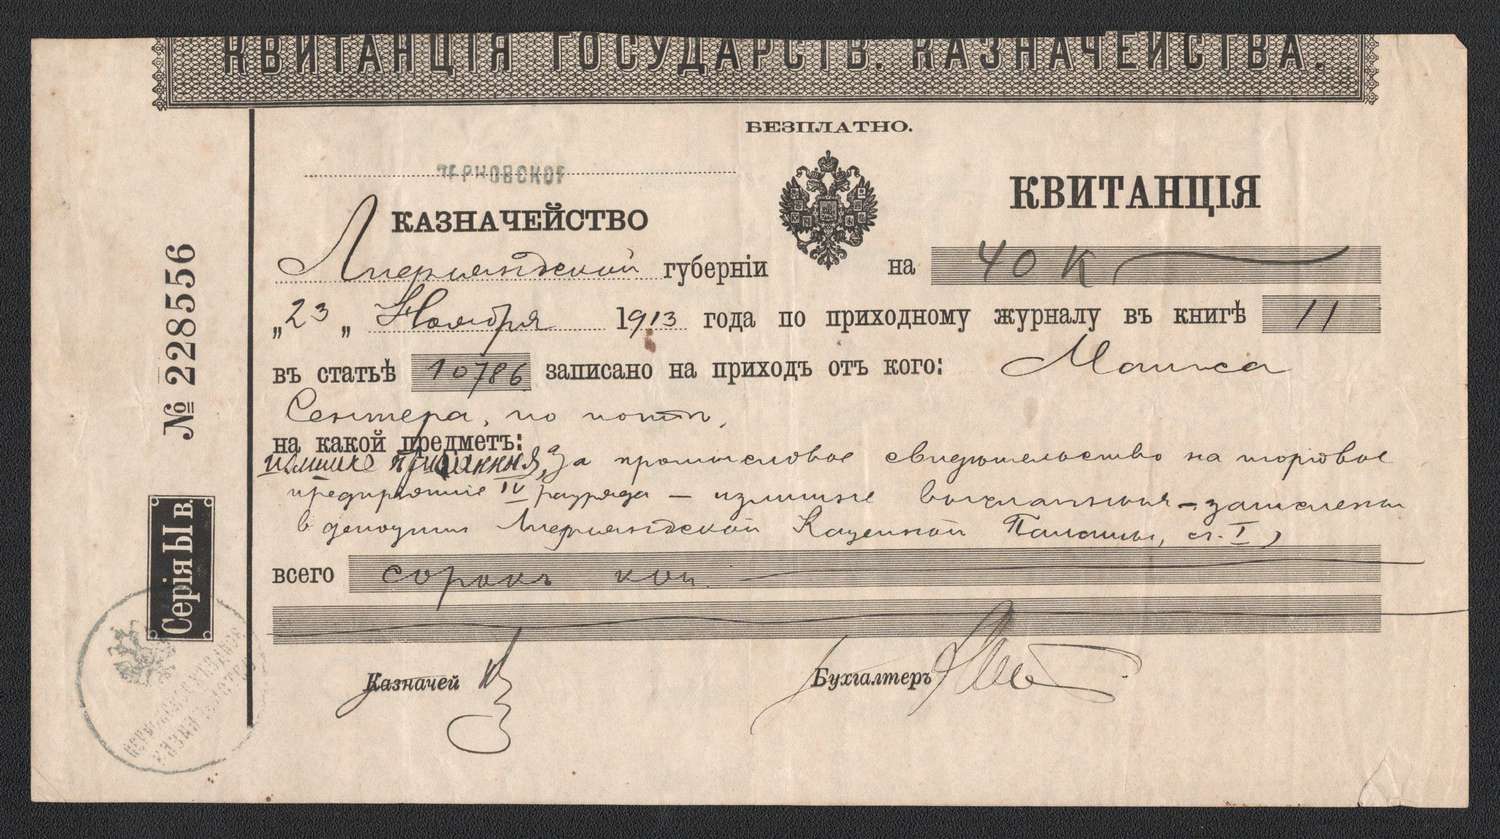 КВИТАНЦІЯ ГОСУДАРСТВ. КАЗНАЧЕЙСТВА.
БЕЗПЛАТНО.
ПЕРНОВСКОЕ
КАЗНАЧЕЙСТВО
КВИТАНЦІЯ
Лифляндской губерніи
на 40 к
„23„ Ноября 1913 года по приходному журналу въ книгѣ 11
въ статьѣ 10786 записано на приходъ отъ кого:
Сентера, по
на какой предметъ:
за промысловое свидѣтельство на торговое
предпріятіе IV разряда – излишне – зачислены
в депозитъ Лифляндской Казенной Палаты, ст. I,
всего сорокъ коп.
Казначей
Бухгалтеръ
№ 228556
Серія Ы в.